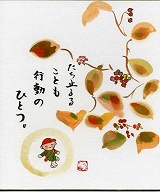 たち止まる
ことも
行動の
ひとつ。